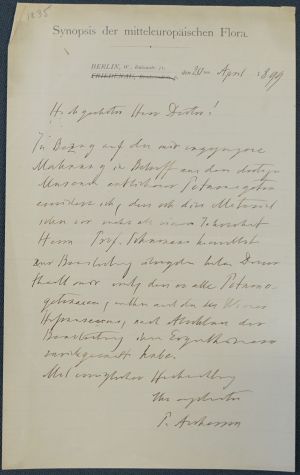 1895
Synopsis der mitteleuropäischen Flora.
BERLIN, W.
FRIEDENAU, den April 1899
Hochgeehrter Herr Director!
In Bezug auf die mir zugegangene
Mahnung in Betreff aus dem dortigen
Museum entliehener Potamogeton
erwidere ich, dass ich dies Material
schon vor mehr als einem
Herrn Prof.
zur Bearbeitung übergeben habe. Dieser
theilt mir mit, dass er alle Potamo-
getonaceen, auch die des Wiener
Hofmuseums, nach Abschluss der
Bearbeitung
zurückgesandt habe.
Mit vorzüglicher Hochachtung
Ihr ergebenster
P. Ascherson